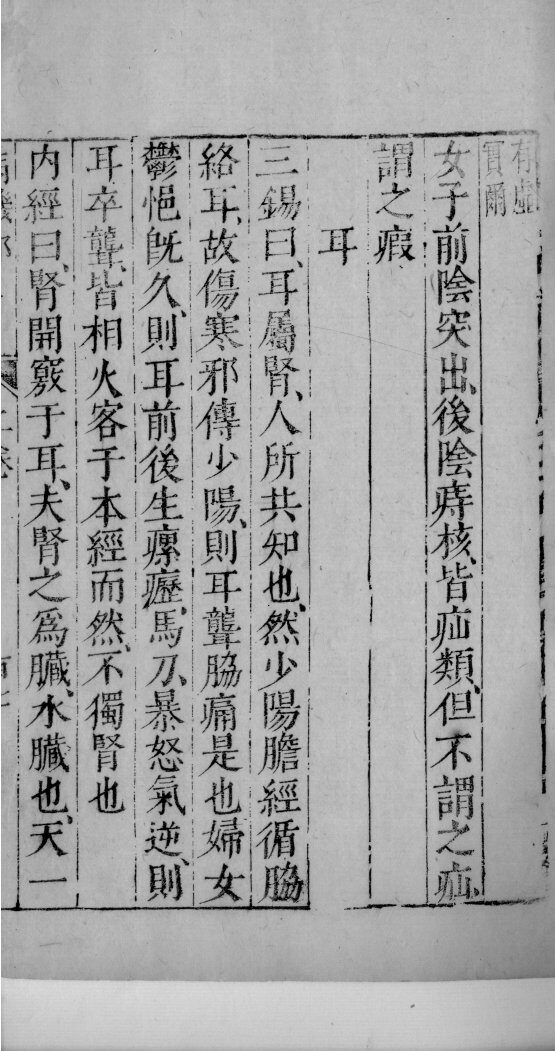 有虛
實爾
女子前陰突出、後陰痔核、皆疝類、但不謂之疝、
謂之瘕
耳
三錫曰、耳屬腎、人所共知也、然少陽膽經循脇
絡耳、故傷寒邪傳少陽、則耳聾脇痛是也婦女
鬱悒旣久、則耳前後生瘰癧、馬刀、暴怒氣逆、則
耳卒聾、皆相火客于本經而然、不獨腎也
內經曰、腎開竅于耳、夫腎之爲臟、水臟也、天一